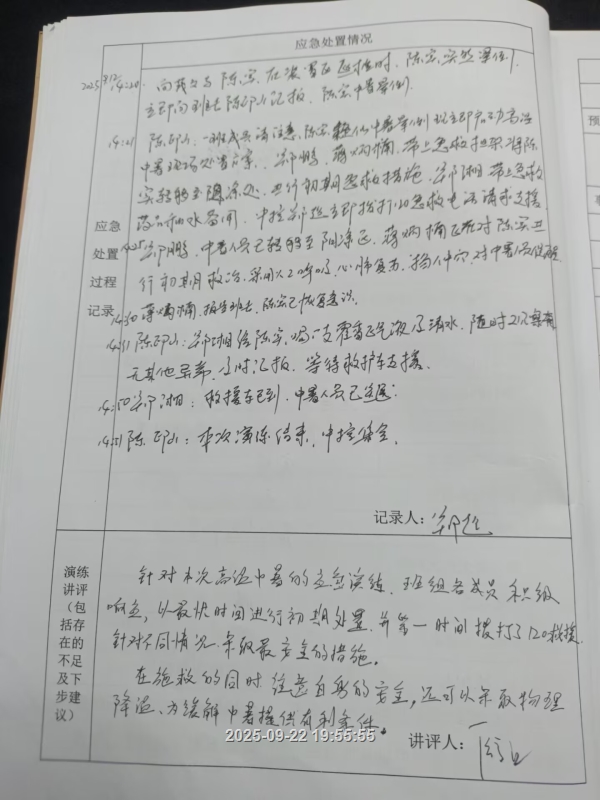 应急处置情况
14:20 陈宗在装置区巡检时,陈宗突然晕倒,
立即向班长陈印山汇报,陈宗中暑晕倒。
陈印山:一班成员请注意,陈宗 中暑晕倒 现立即启动高温
中暑现场处置方案,郑鹏、蒋炳楠,带上急救 将陈
宗转移至阴凉处,进行初期急救措施,郑湘带上急救
药品和水备用,中控郑 立即拨打120急救电话请求支援
应急
处置
过程
记录
14:25 郑鹏:中暑人员已转移至阴凉处,蒋炳楠正在对陈宗进
行初期救治,采用人工呼吸,心肺复苏, 对中暑人员
14:30 蒋炳楠:报告班长,陈宗已恢复意识。
14:31 陈印山:郑湘给陈宗喝一支藿香正气液及清水,随时
无其他异常,及时汇报,等待救护车支援。
14:50 郑湘:救援车已到,中暑人员已送
14:51 陈印山:本次演练结束,中控
记录人:郑
演练
讲评
(包
括存
在的
不足
及下
步建
议)
针对本次高温中暑的应急演练,班组各成员积极
响应,以最快时间进行初期处置,并第一时间拨打了120救援,
针对不同情况采取最安全的措施。
在施救的同时注意自身的安全,还可以采取物理
降温,为缓解中暑提供有利条件。
2025-09-22 19:55:55
讲评人:
预